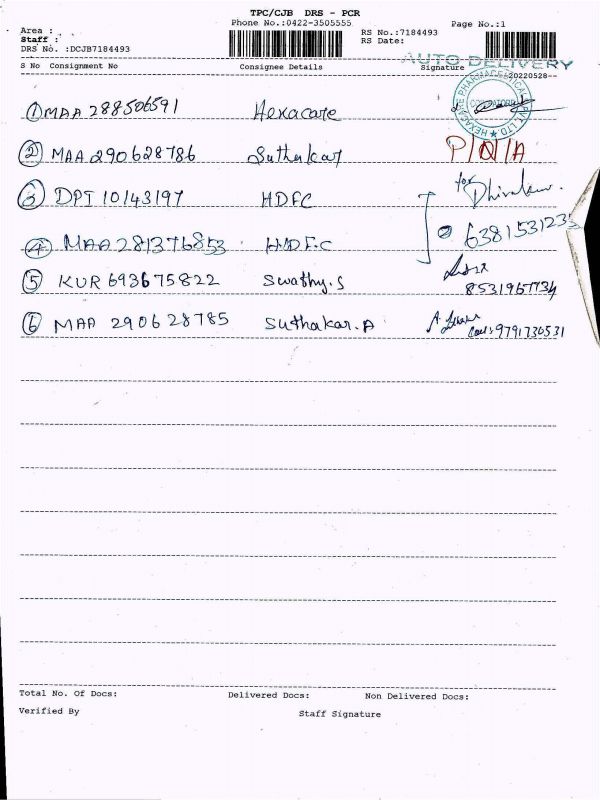 TPC/CJB DRS - PCR
Phone No.:0422-3505555
Page No.:1
Area :
Staff :
DRS No. :DCJB7184493
RS No.:7184493
RS Date:
AUTO DELIVERY
S No Consignment No Consignee Details Signature
20220528--
HEXACARE PHARMACEUTICAL PVT. LTD
① MAA 288506591 Hexacare
② MAA 290628786 Suthakar P/N/A
③ DPI 10143197 HDFC for Dhivakar.
④ MAA 281376853 HDFC 6381531235
⑤ KUR 693675822 Swathy.S
8531967734
⑥ MAA 290628785 Suthakar.A
9791730531
Total No. Of Docs: Delivered Docs: Non Delivered Docs:
Verified By Staff Signature